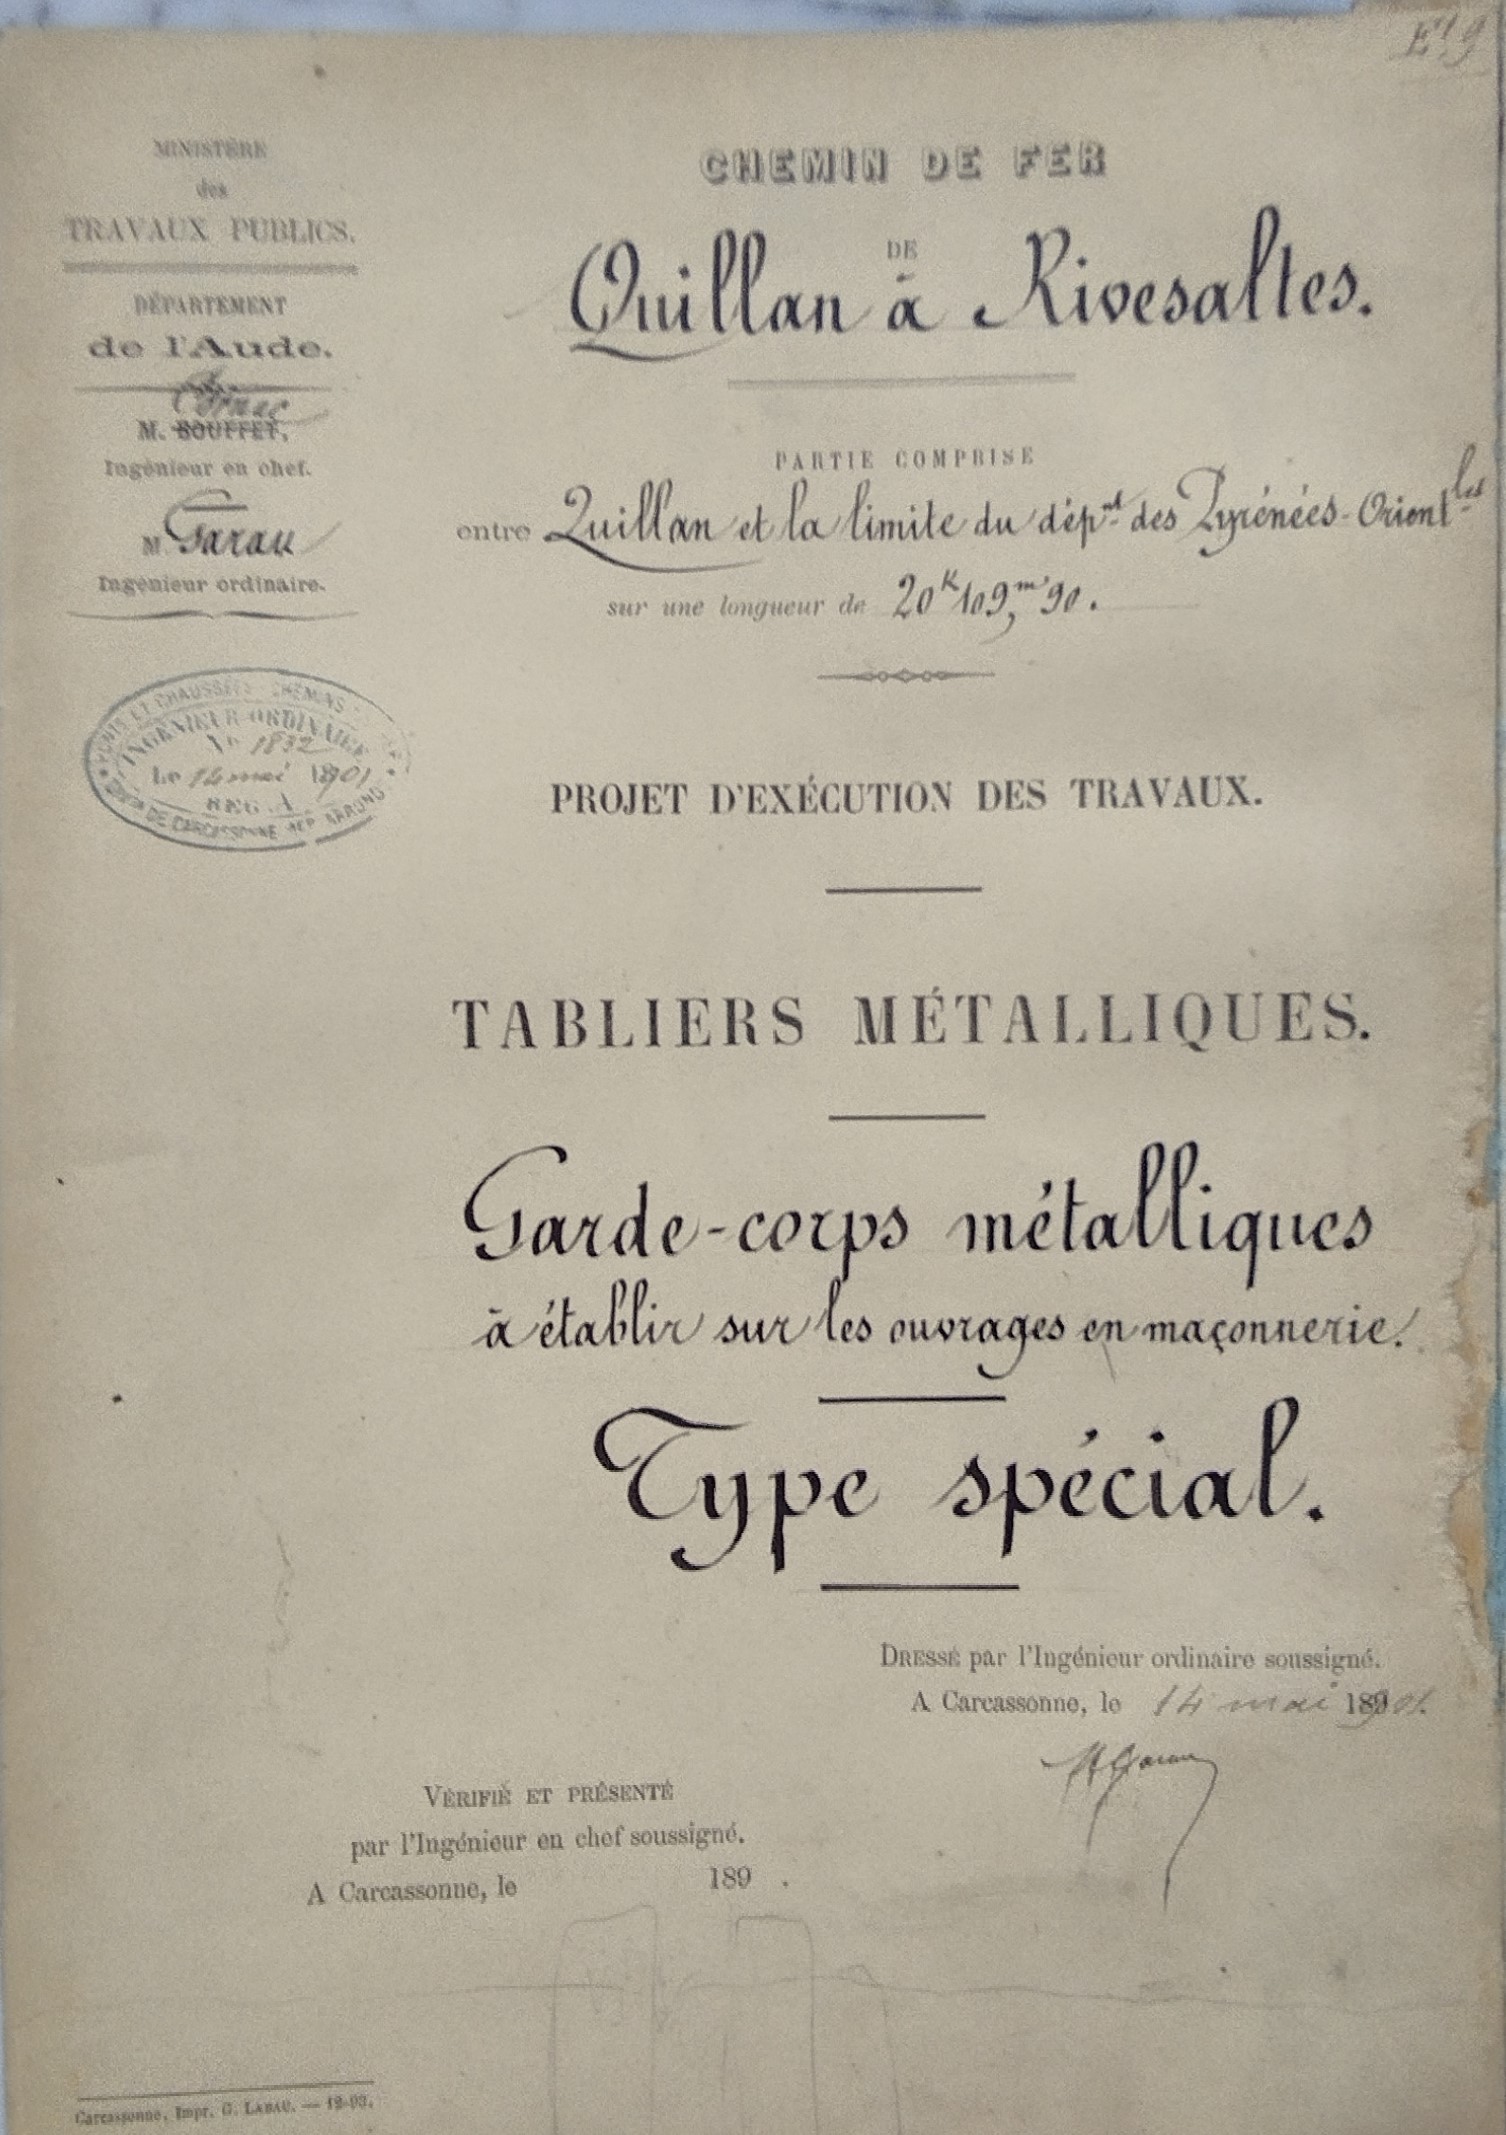 MINISTÈRE
des
TRAVAUX PUBLICS.
DÉPARTEMENT
de l'Aude.
M. BOUFFET,
Ingénieur en chef.
M. Garau
Ingénieur ordinaire.
PONTS ET CHAUSSÉES CHEMINS
INGÉNIEUR ORDINAIRE
N° 1832
Le 14 mai 1901
REG. A
DE CARCASSONNE ARROND
CHEMIN DE FER
DE
Quillan à Rivesaltes.
PARTIE COMPRISE
entre Quillan et la limite du dépnt des Pyrénées-Orientles
sur une longueur de 20K109,m90.
PROJET D'EXÉCUTION DES TRAVAUX.
TABLIERS MÉTALLIQUES.
Garde-corps métalliques
à établir sur les ouvrages en maçonnerie.
Type spécial.
DRESSÉ par l'Ingénieur ordinaire soussigné.
A Carcassonne, le 14 mai 1901.
VÉRIFIÉ ET PRÉSENTÉ
par l'Ingénieur en chef soussigné.
A Carcassonne, le 189 .
Carcassonne, Impr. G. LABAU. — 12-93.